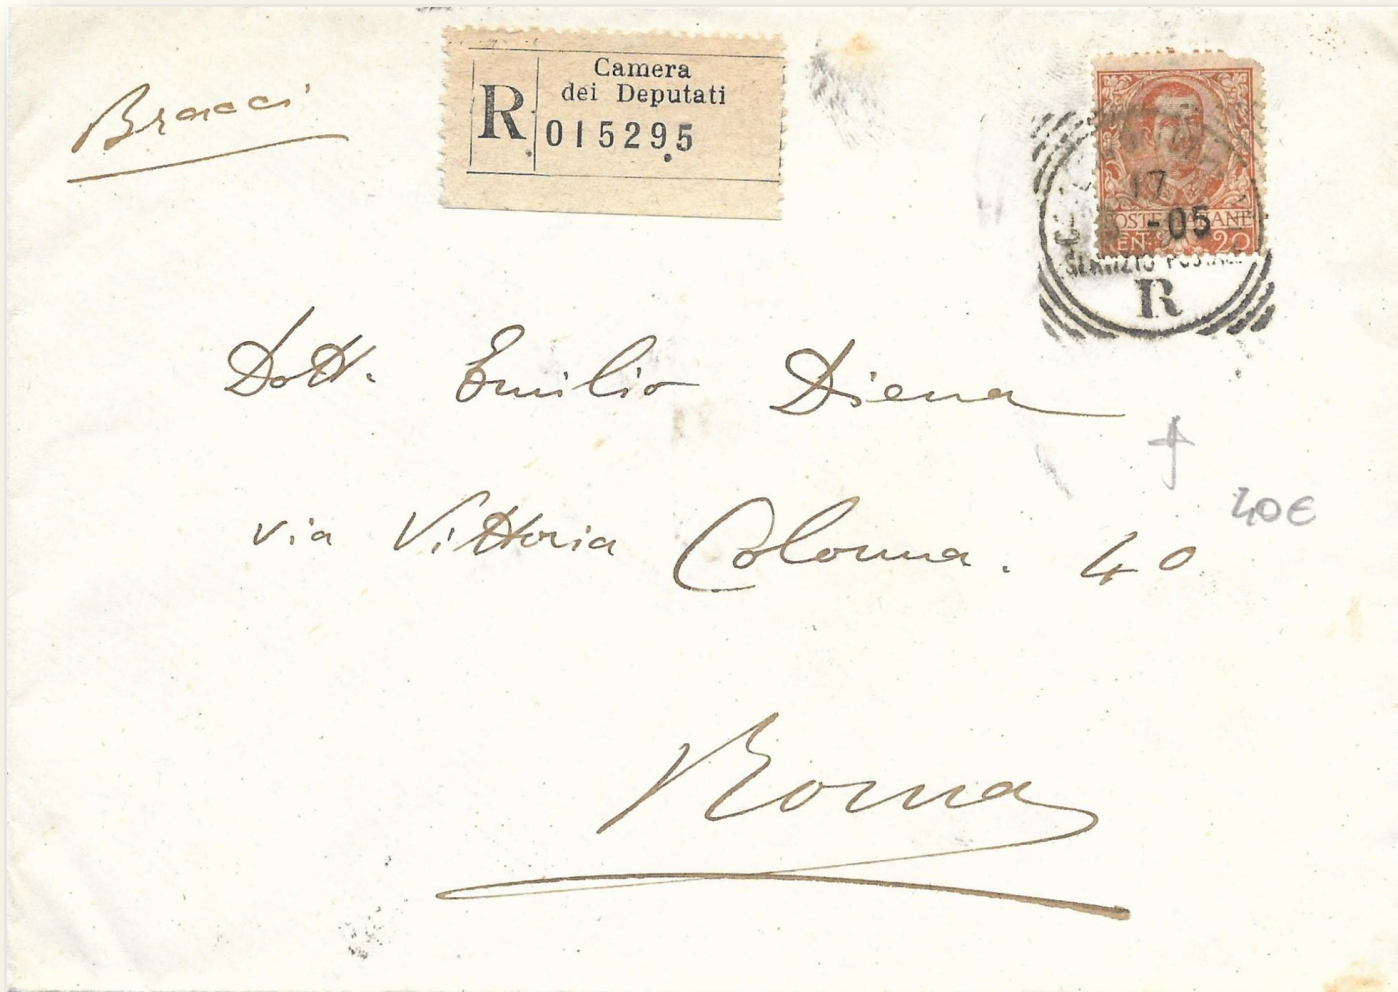 Bracci
Camera
dei Deputati
R
015295
17
-05
POSTE ITALIANE
CEN. 20
SERVIZIO POSTALE
R
Dott. Emilio Diena
via Vittoria Colonna. 40
40€
Roma